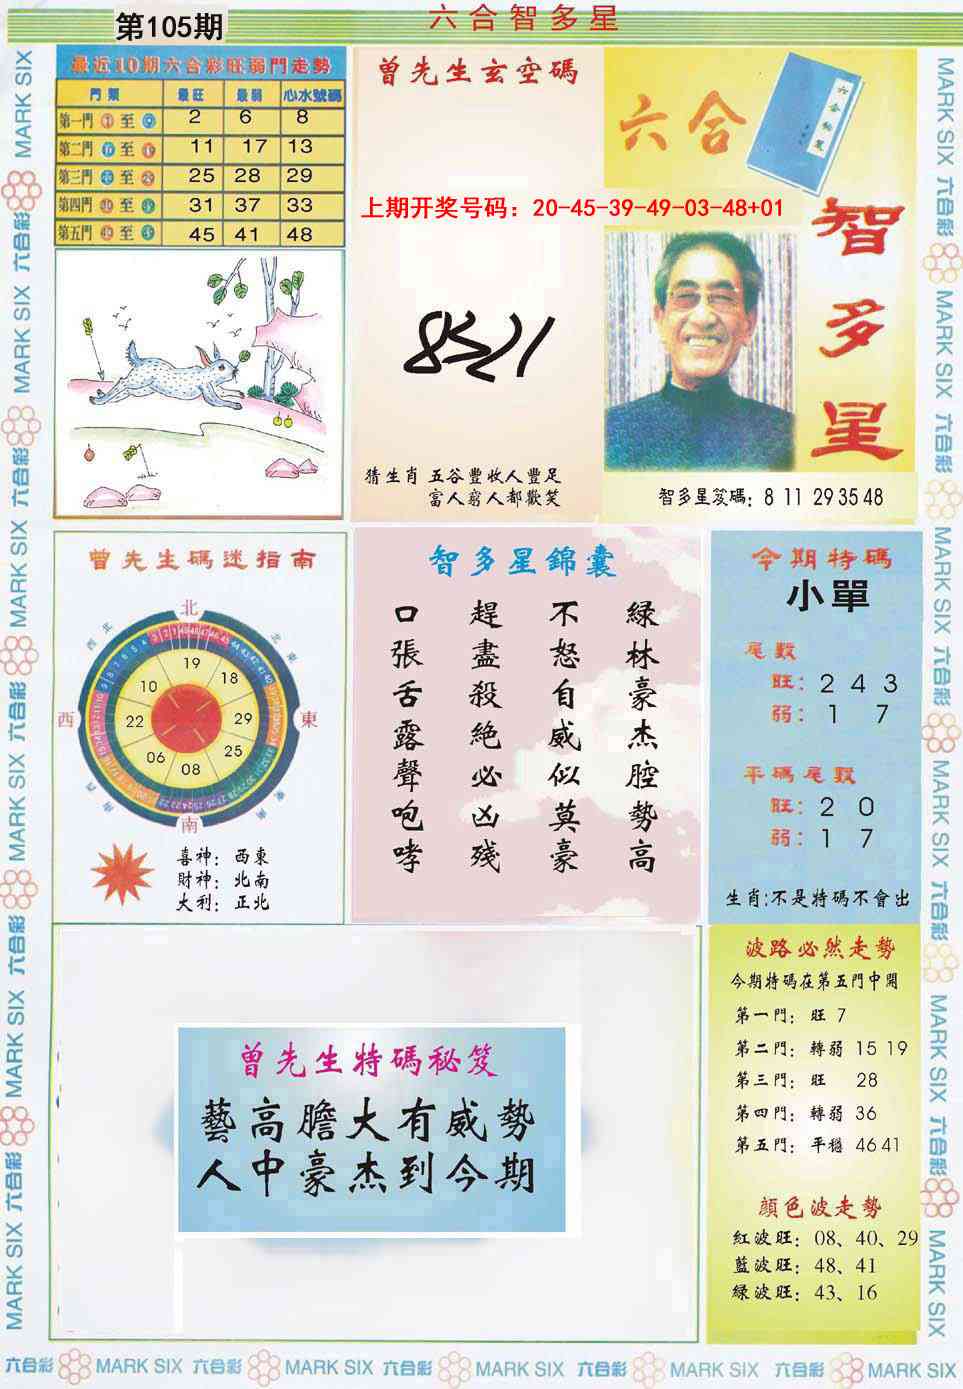 六合智多星
第105期
最近10期六合彩旺弱門走勢
門類 最旺 最弱 心水號碼
第一門 至 2 6 8
第二門 至 11 17 13
第三門 至 25 28 29
第四門 至 31 37 33
第五門 至 45 41 48
曾先生玄空碼
上期开奖号码：20-45-39-49-03-48+01
猜生肖 五谷豐收人豐足
富人窮人都歡笑
六合
智多星
智多星笈碼：8 11 29 35 48
曾先生碼迷指南
北
西北
東北
西
東
西南
東南
南
19
18
29
25
08
06
22
10
喜神：西東
財神：北南
大利：正北
智多星錦囊
綠林豪杰腔勢高
不怒自威似莫豪
趕盡殺絕必凶殘
口張舌露聲咆哮
今期特碼
小單
尾數
旺：2 4 3
弱：1 7
平碼尾數
旺：2 0
弱：1 7
生肖:不是特碼不會出
曾先生特碼秘笈
藝高膽大有威勢
人中豪杰到今期
波路必然走勢
今期特碼在第五門中開
第一門：旺 7
第二門：轉弱 15 19
第三門：旺 28
第四門：轉弱 36
第五門：平穩 46 41
顔色波走勢
紅波旺：08、40、29
藍波旺：48、41
綠波旺：43、16
MARK SIX 六合彩 MARK SIX 六合彩 MARK SIX 六合彩 MARK SIX 六合彩 MARK SIX 六合彩 MARK SIX
MARK SIX 六合彩 MARK SIX 六合彩 MARK SIX 六合彩 MARK SIX 六合彩 MARK SIX 六合彩 MARK SIX
六合彩 MARK SIX 六合彩 MARK SIX 六合彩 MARK SIX 六合彩 MARK SIX